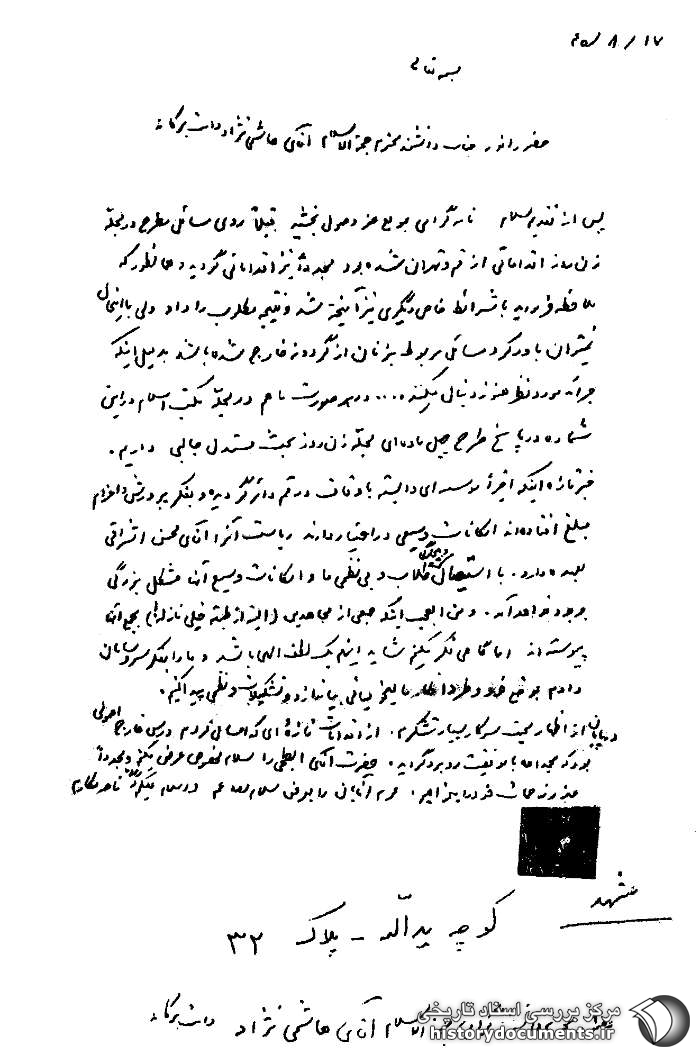 ۴۵/۸/۱۷
بسمه تعالی
حضور انور جناب دانشمند محترم حجة الاسلام آقای هاشمی نژاد دامت برکاته
پس از تقدیم سلام نامه گرامی موقع عز وصول بخشید قبلاً روی مسائل مطرح در مجله
زن روز اقداماتی از قم و تهران شده بود مجدداً نیز اقداماتی گردید و همانطور که
ملاحظه فرمودید با شرائط خاص دیگری نیز آمیخته شد و نتیجه مطلوب را داد ولی با اینحال
نمیتوان باور کرد مسائل مربوط بزنان از گردونه خارج شده باشد بدلیل اینکه
جرائد مورد نظر هنوز دنبال میکنند .... در هر صورت ما هم در مجله مکتب اسلام در این
شماره در پاسخ طرح چهل ماده‌ای مجله زن روز بحث مستدل جالبی داریم.
خبر تازه اینکه اخیراً موسسه ای وابسته باوقاف در قم دائر گردیده و بفکر پرورش و اعزام
مبلغ افتاده‌اند امکانات وسیعی در اختیار دارند ریاست آنرا آقای محسن اشراقی
بعهده دارد. با استیصال طلاب و بی نظمی ما و امکانات وسیع آنها مشکل بزرگی
بوجود خواهد آمد. و من العجب اینکه جمعی از مجاهدین (البته از طبقه خیلی نازل!) بجمع آنها
پیوسته‌اند اما گاهی فکر میکنم شاید این هم یک لطف الهی باشد و ما را بفکر سر و سامان
دادم بوضع خود و طرد
و تشکیلات و نظمی پیدا کنیم.
و در پایان از اظهار محبت سرکار بسیار متشکرم. از اقدامات تازه ای که امسال کردم درس خارج اصولی
بود که بحمدالله با موفقیت روبرو گردید. حضرت آقای ابطحی را سلام مخصوص عرض میکنم و مجدداً
ناصر مکارم
مشهد
کوچه یدالله - پلاک ۳۲
حجة الاسلام آقای هاشمی نژاد دامت برکاته
مرکز بررسی اسناد تاریخی
historydocuments.ir